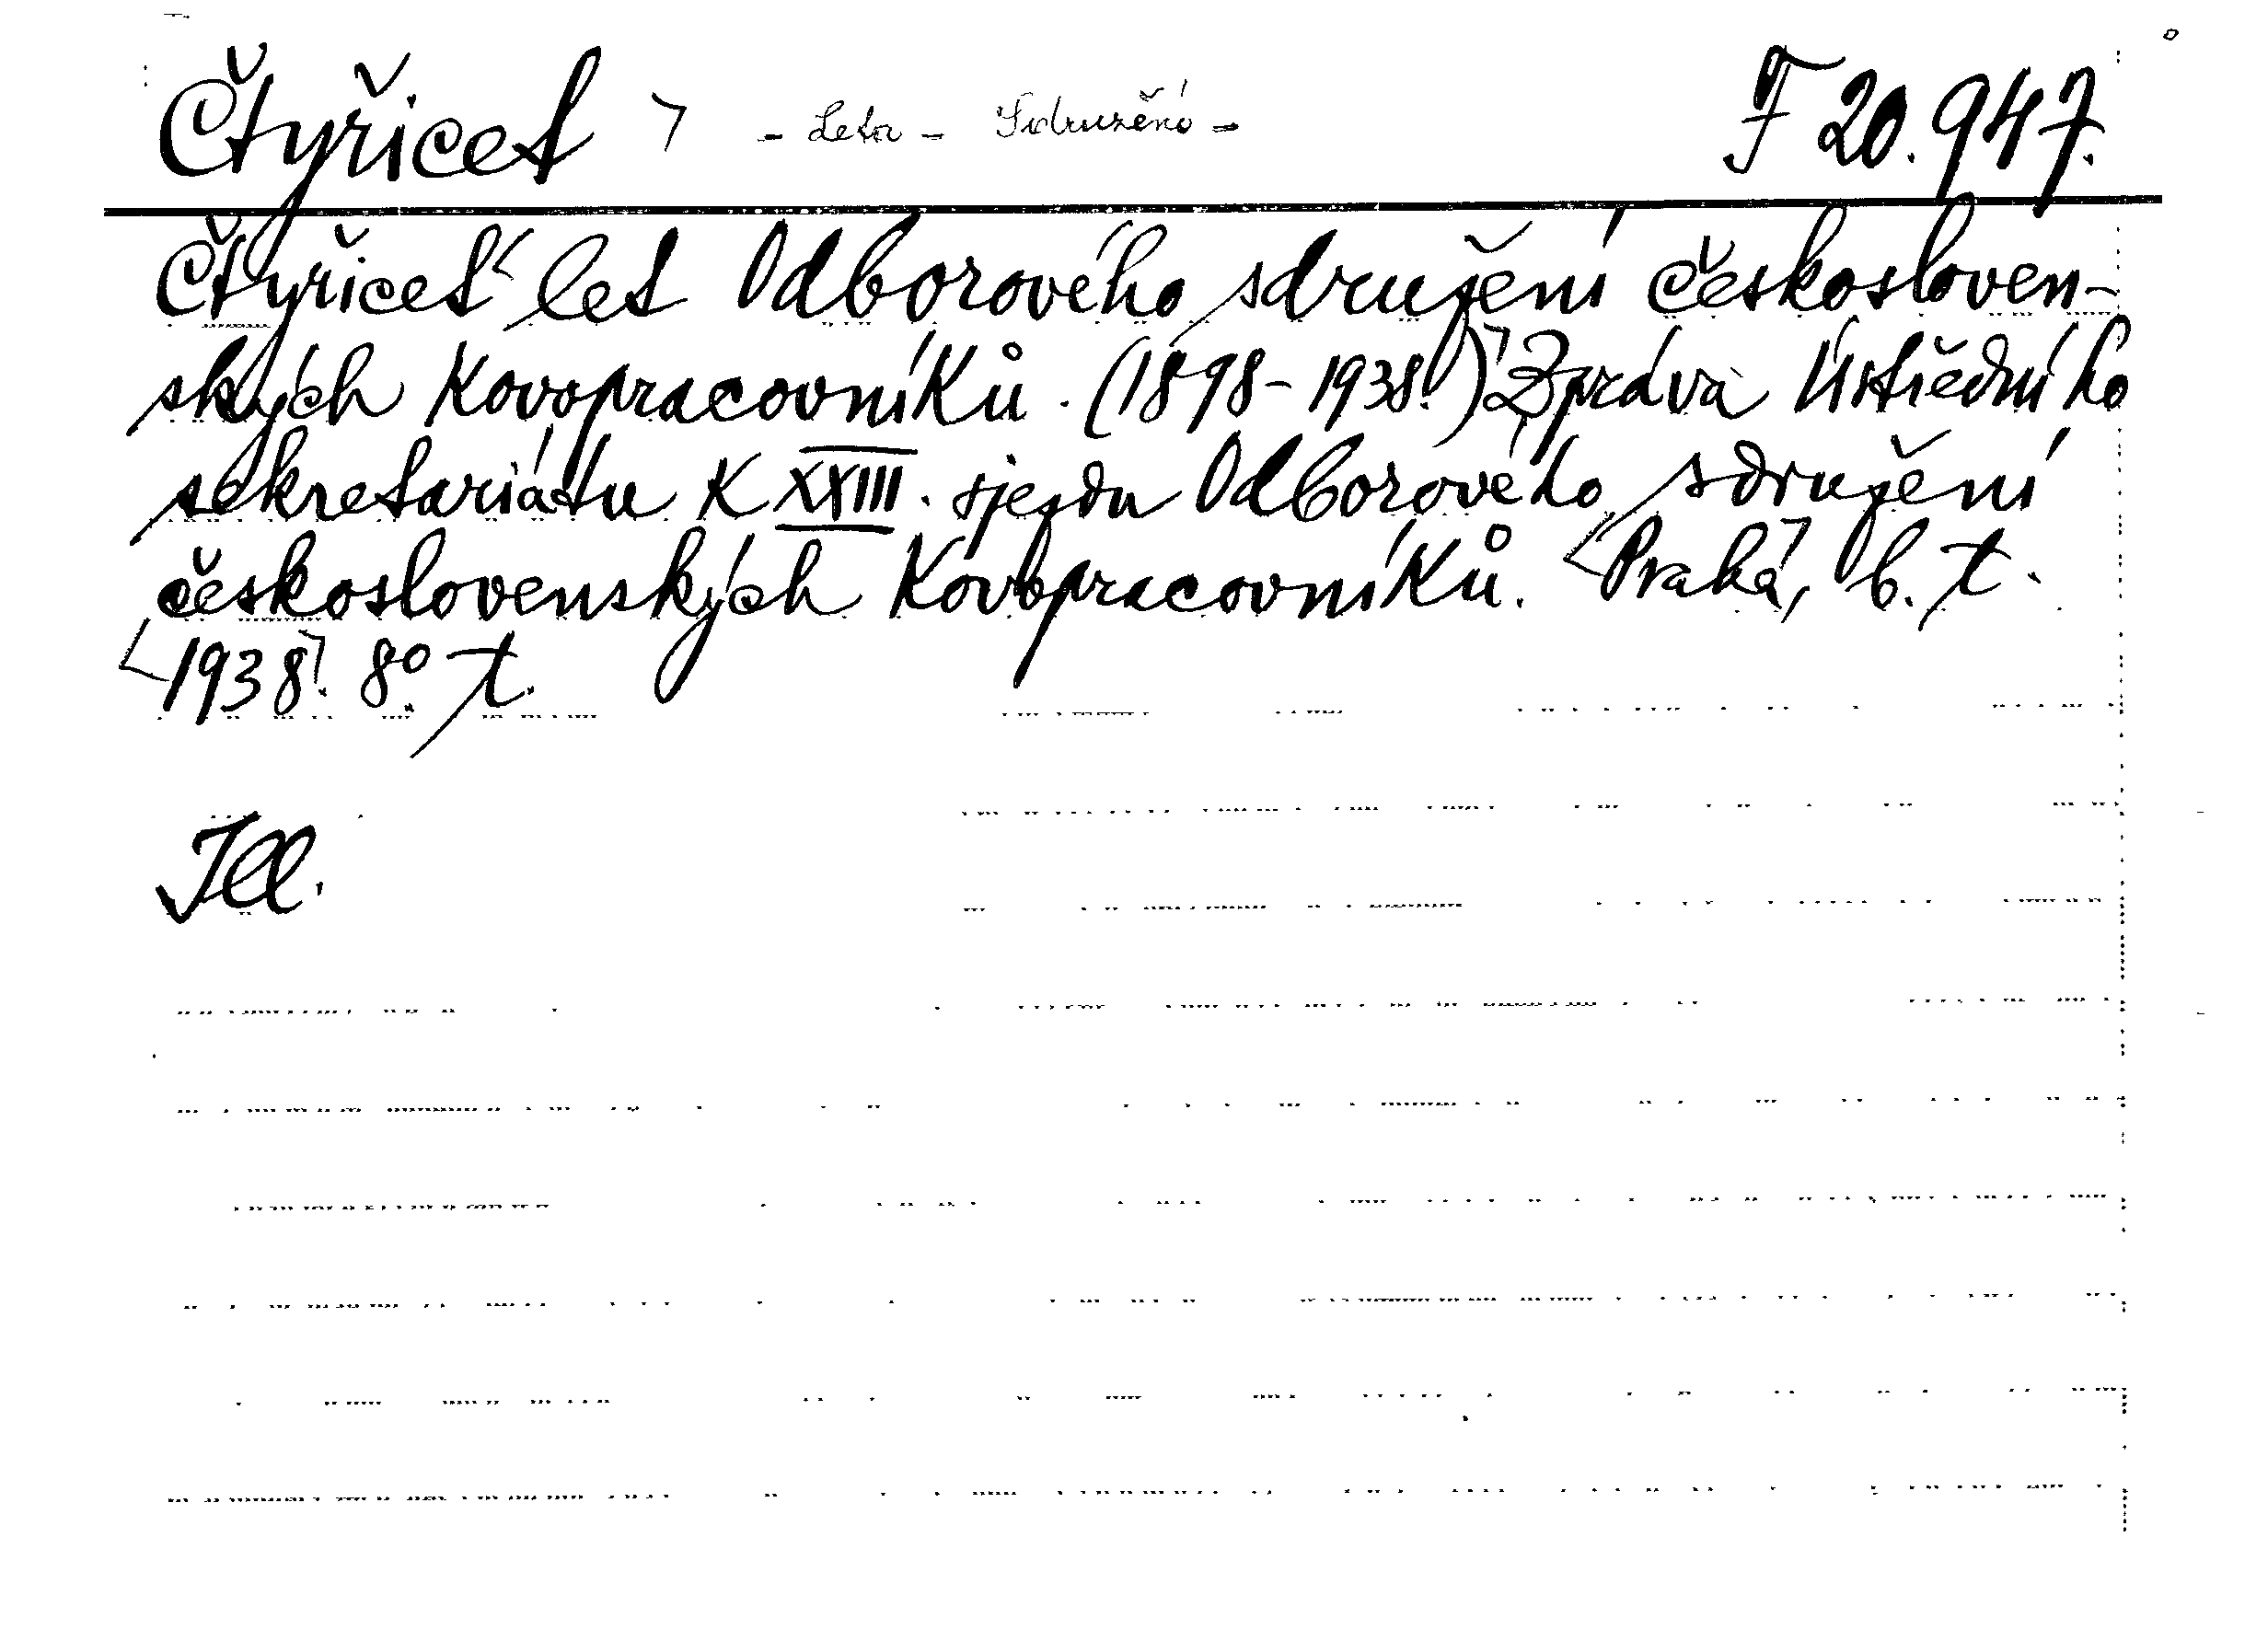 Čtyřicet ⌝ - Leta - Sdružení - F 20.947.
Čtyřicet let Odborového sdružení českosloven-
ských kovopracovníků. (1898-1938.) Zpráva Ústředního
sekretariátu k XXIII. sjezdu Odborového sdružení
československých kovopracovníků. Praha, b. t.
1938. 8° t.
Ill.